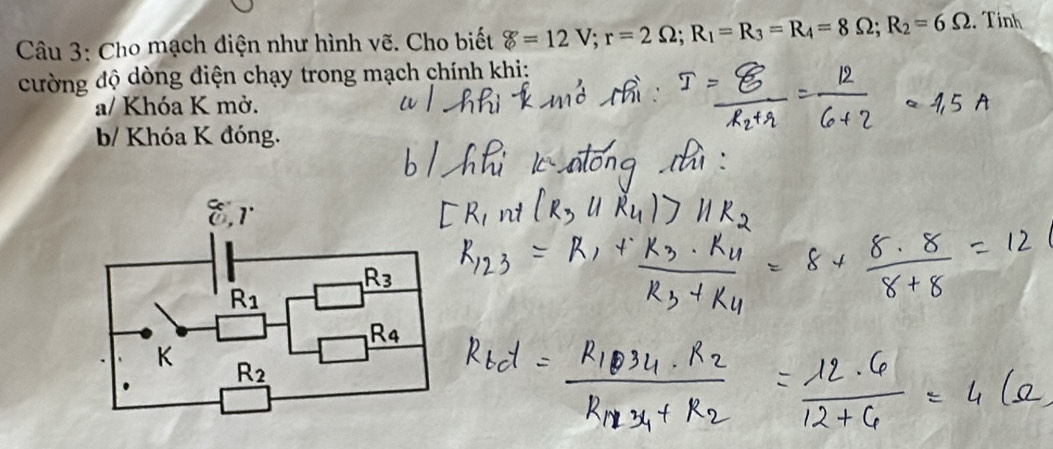 Câu 3: Cho mạch điện như hình vẽ. Cho biết ℰ = 12 V; r = 2 Ω; R₁ = R₃ = R₄ = 8 Ω; R₂ = 6 Ω. Tính
cường độ dòng điện chạy trong mạch chính khi:
a/ Khóa K mở.
b/ Khóa K đóng.
a/ khi k mở thì: I = ℰ / (R₂+r) = 12 / (6+2) = 1,5 A
b/ khi k đóng thì:
[R₁ nt (R₃ // R₄)] // R₂
R₁₂₃ = R₁ + (R₃ . R₄) / (R₃ + R₄) = 8 + (8 . 8) / (8 + 8) = 12 (
Rtđ = (R₁₃₄ . R₂) / (R₁₃₄ + R₂) = (12 . 6) / (12 + 6) = 4 (Ω)
ℰ, r
R3
R1
R4
K
R2